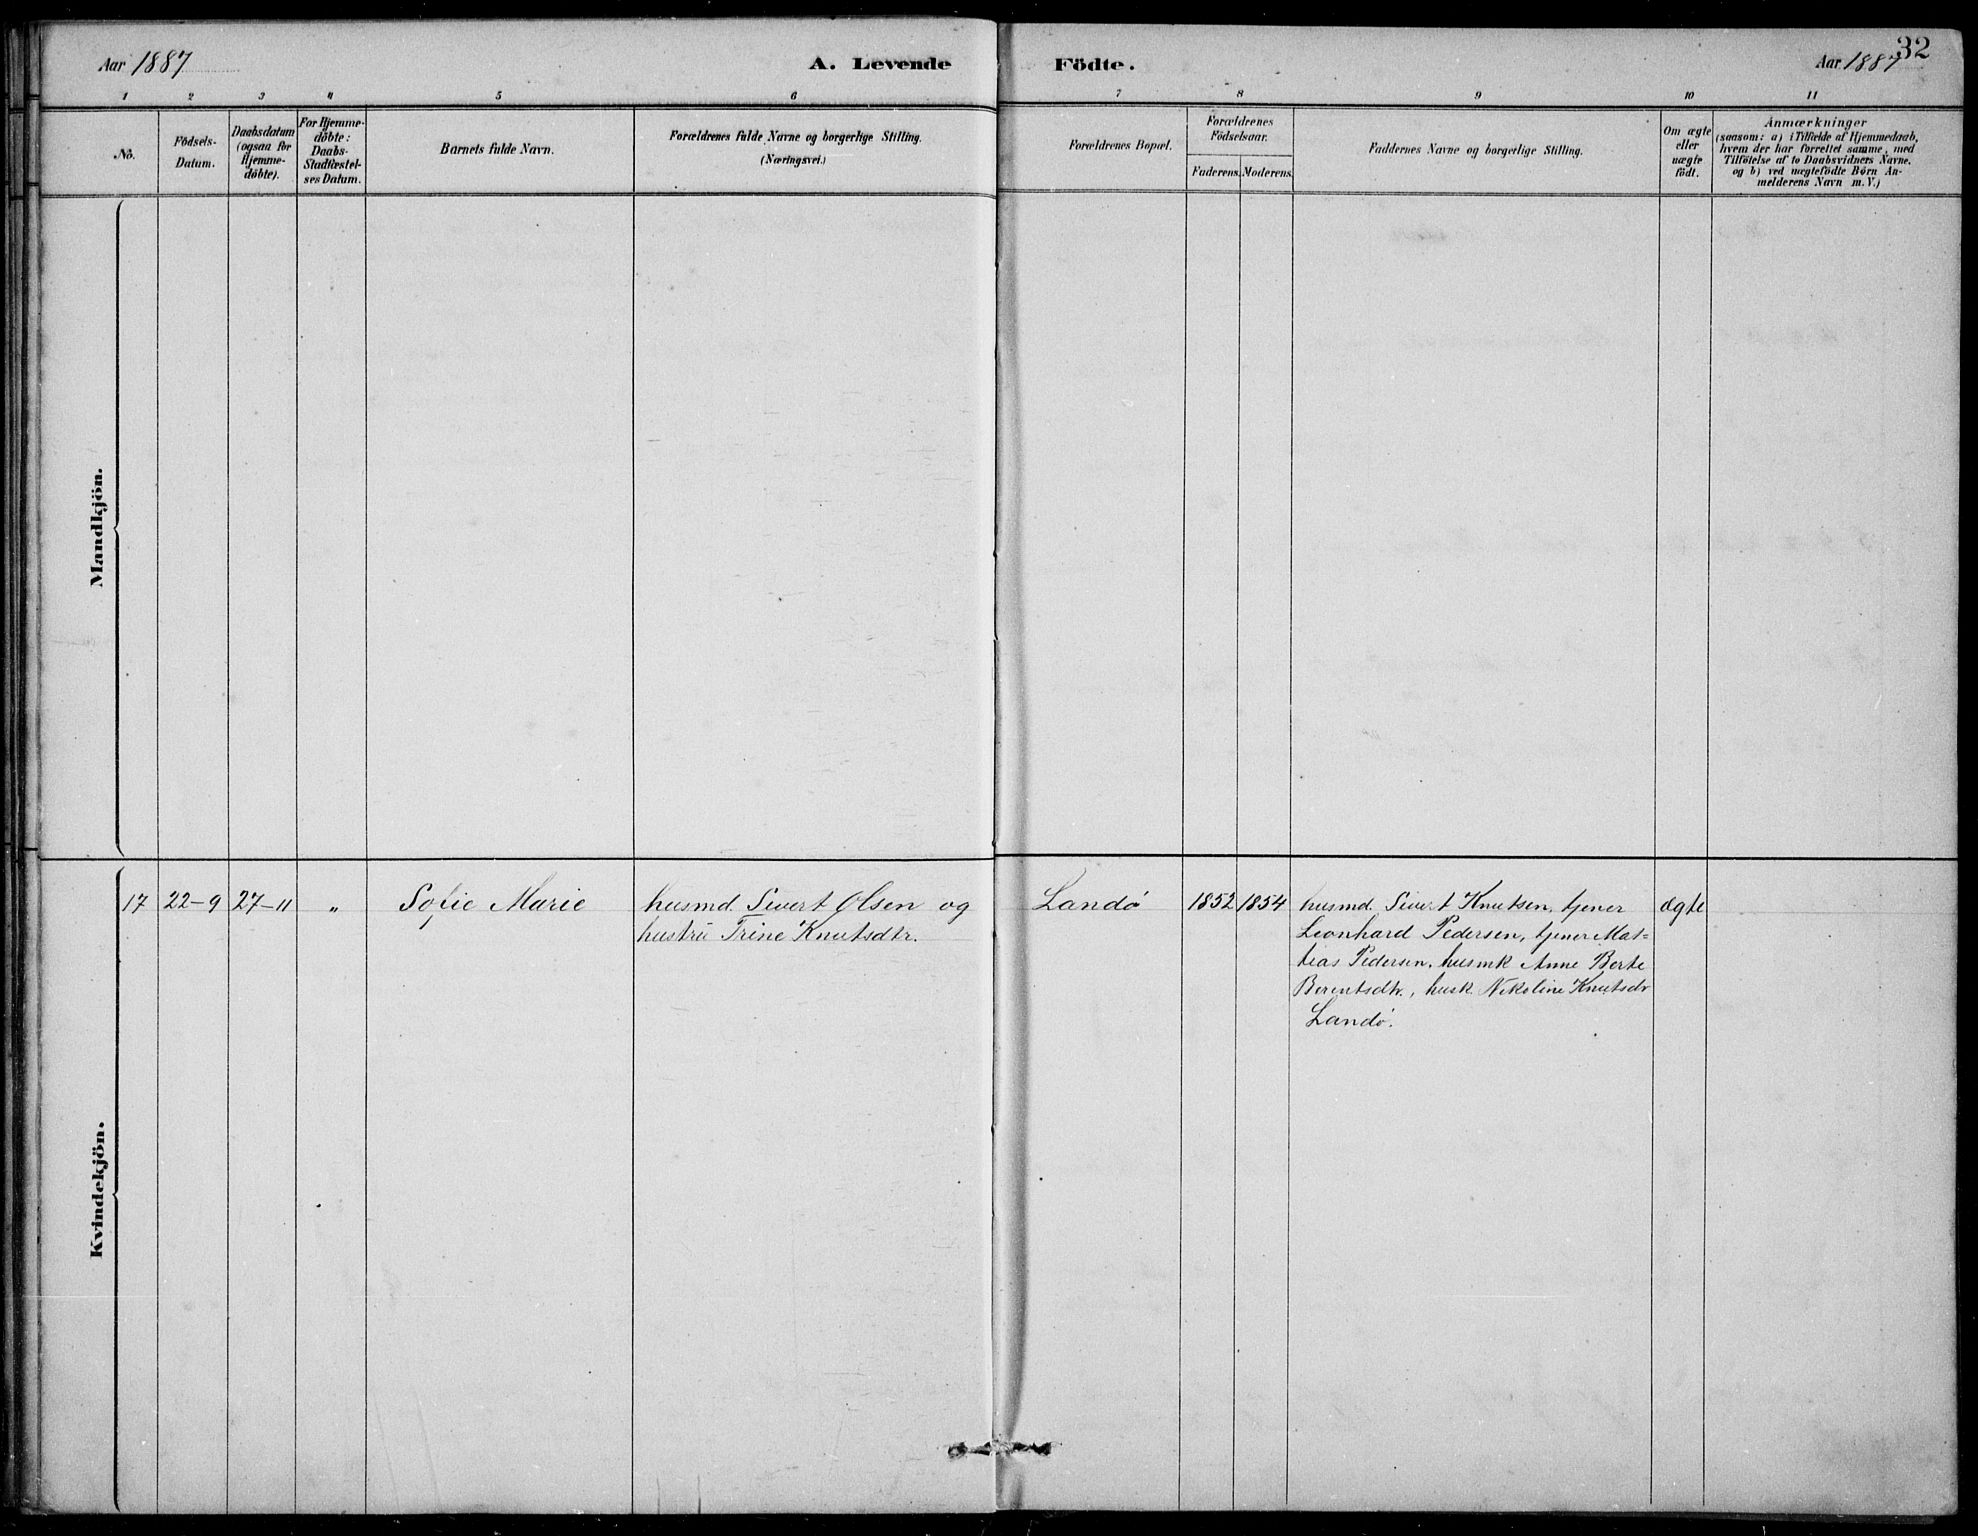 Aar 1887
A. Levende
Födte.
Aar 1887
32
1 2 3 4 5 6 7 8 9 10 11
No.
Födsels-
Datum.
Daabsdatum
(ogsaa for
Hjemme-
döbte).
For Hjemme-
döbte:
Daabs-
Stadfæstel-
ses Datum.
Barnets fulde Navn.
Forældrenes fulde Navne og borgerlige Stilling.
(Næringsvei.)
Forældrenes Bopæl.
Forældrenes
Födselsaar.
Faderens. Moderens.
Faddernes Navne og borgerlige Stilling.
Om ægte
eller
uægte
födt.
Anmærkninger
(saasom: a) i Tilfælde af Hjemmedaab,
hvem der har forrettet samme, med
Tilföielse af to Daabsvidners Navne.
og b) ved uægtefödte Börn An-
melderens Navn m. V.)
Mandkjön.
Kvindekjön.
17 22-9 27-11 " Sofie Marie
husmd. Sivert Olsen og
hustru Trine Knutsdtr.
Landö
1852 1854
husmd. Sivert Knutsen, tjener
Leonhard Pedersen, tjener Mat=
tias Pedersen, husmk Anne Berte
Berentsdtr., husk. Nikoline Knutsdr
Landö.
ægte